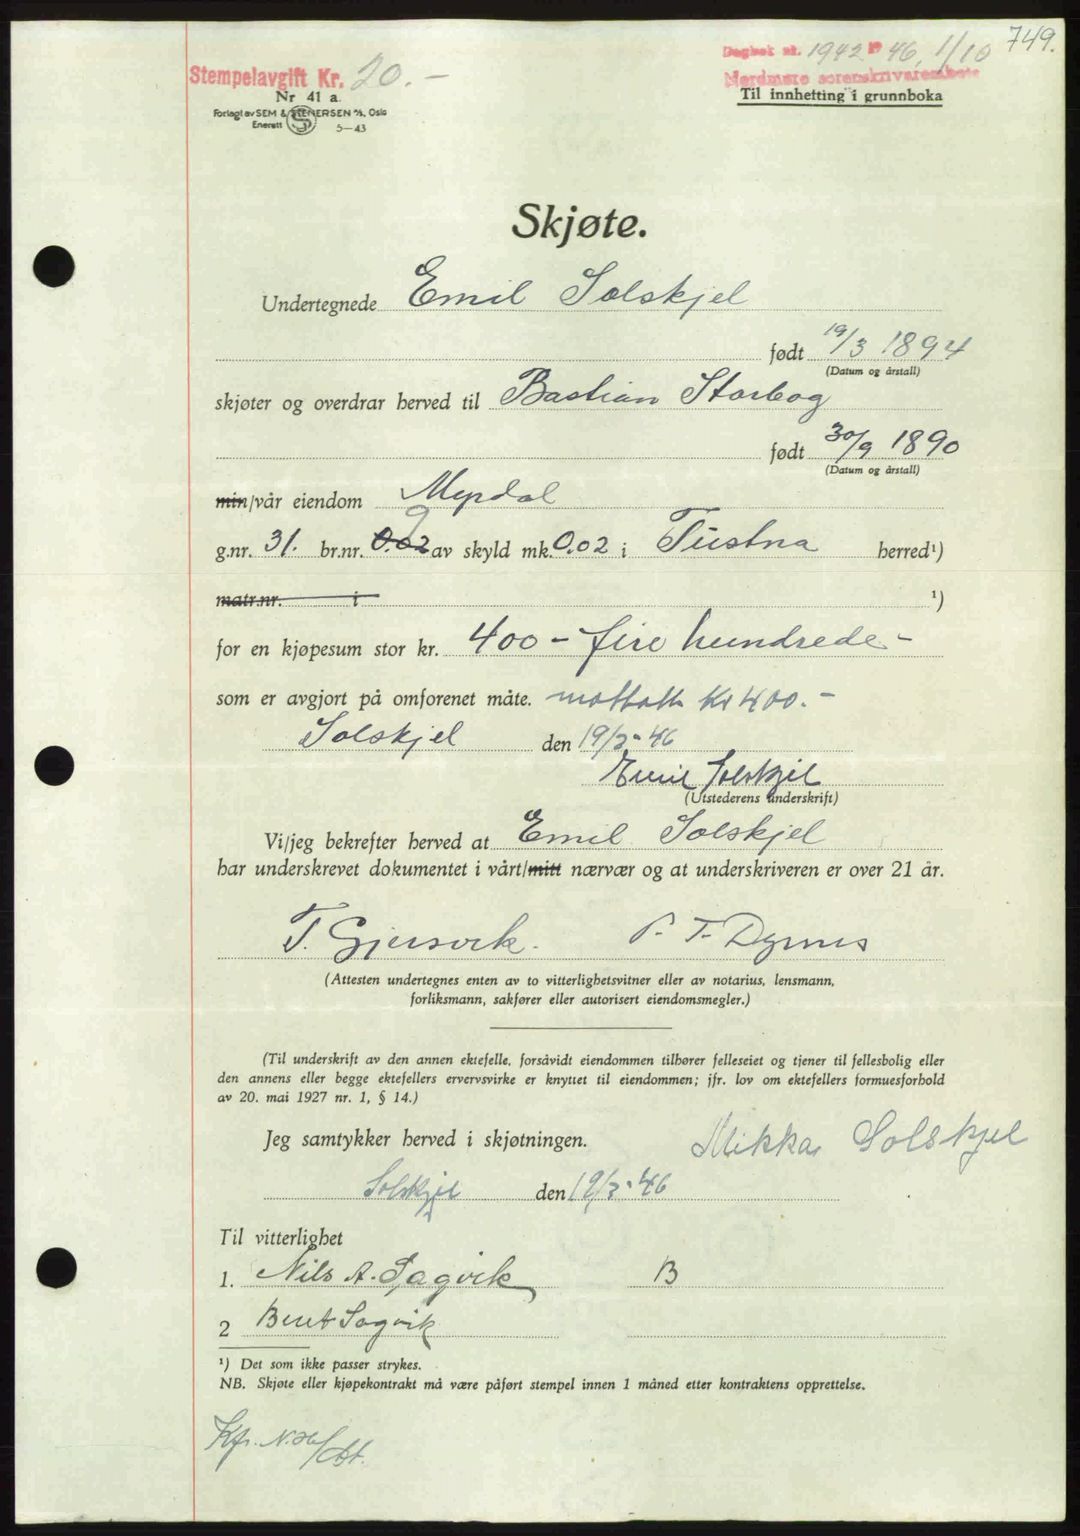 749.
Dagbok nr. 1942 19 46, 1/10
Stempelavgift Kr. 20.-
Nordmøre sorenskriverembete
Nr 41 a.
Til innhetting i grunnboka
Forlagt av SEM & STENERSEN A/S, Oslo
Enerett S 5-43
Skjøte.
Undertegnede Emil Solskjel
født 19/3 1894
(Datum og årstall)
skjøter og overdrar herved til Bastian Storbog
født 30/9 1890
(Datum og årstall)
min/vår eiendom Myrdal
9
g.nr. 31. br.nr. 0.02 av skyld mk. 0.02 i Tustna herred¹)
matr.nr. i ¹)
for en kjøpesum stor kr. 400 - fire hundrede -
som er avgjort på omforenet måte. mottatt Kr 400.-
Solskjel den 19/3-46
Emil Solskjel
(Utstederens underskrift)
Vi/jeg bekrefter herved at Emil Solskjel
har underskrevet dokumentet i vårt/mitt nærvær og at underskriveren er over 21 år.
T. Gjersvik. P. T. Dyrnes
(Attesten undertegnes enten av to vitterlighetsvitner eller av notarius, lensmann,
forliksmann, sakfører eller autorisert eiendomsmegler.)
(Til underskrift av den annen ektefelle, forsåvidt eiendommen tilhører felleseiet og tjener til fellesbolig eller
den annens eller begge ektefellers ervervsvirke er knyttet til eiendommen; jfr. lov om ektefellers formuesforhold
av 20. mai 1927 nr. 1, § 14.)
Jeg samtykker herved i skjøtningen. Mikka Solskjel
Solskjel den 19/3-46
Til vitterlighet
1. Nils A. Sagvik B
2 Berit Sagvik
¹) Det som ikke passer strykes.
NB. Skjøte eller kjøpekontrakt må være påført stempel innen 1 måned etter kontraktens opprettelse.
Kfr.